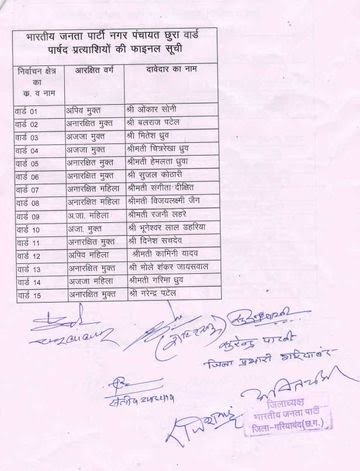 भारतीय जनता पार्टी नगर पंचायत छुरा वार्ड
पार्षद प्रत्याशियों की फाइनल सूची
निर्वाचन क्षेत्र का क्र. व नाम आरक्षित वर्ग दावेदार का नाम
वार्ड 01 अपिव मुक्त श्री ओंकार सोनी
वार्ड 02 अनारक्षित मुक्त श्री बलराज पटेल
वार्ड 03 अजजा मुक्त श्री मितेश ध्रुव
वार्ड 04 अजजा मुक्त श्रीमती चित्ररेखा ध्रुव
वार्ड 05 अनारक्षित मुक्त श्रीमती हेमलता ध्रुवा
वार्ड 06 अनारक्षित मुक्त श्री सुजल कोठारी
वार्ड 07 अनारक्षित महिला श्रीमती संगीता दीक्षित
वार्ड 08 अनारक्षित महिला श्रीमती विजयलक्ष्मी जैन
वार्ड 09 अ.जा. महिला श्रीमती रजनी लहरे
वार्ड 10 अजा. मुक्त श्री भूनेश्वर लाल डहरिया
वार्ड 11 अनारक्षित मुक्त श्री दिनेश सचदेव
वार्ड 12 अपिव महिला श्रीमती कामिनी यादव
वार्ड 13 अनारक्षित मुक्त श्री भोले शंकर जायसवाल
वार्ड 14 अजजा महिला श्रीमती गरिमा ध्रुव
वार्ड 15 अनारक्षित मुक्त श्री नरेन्द्र पटेल
जिला प्रभारी गरियाबंद
जिलाध्यक्ष
भारतीय जनता पार्टी
जिला-गरियाबंद(छ.ग.)